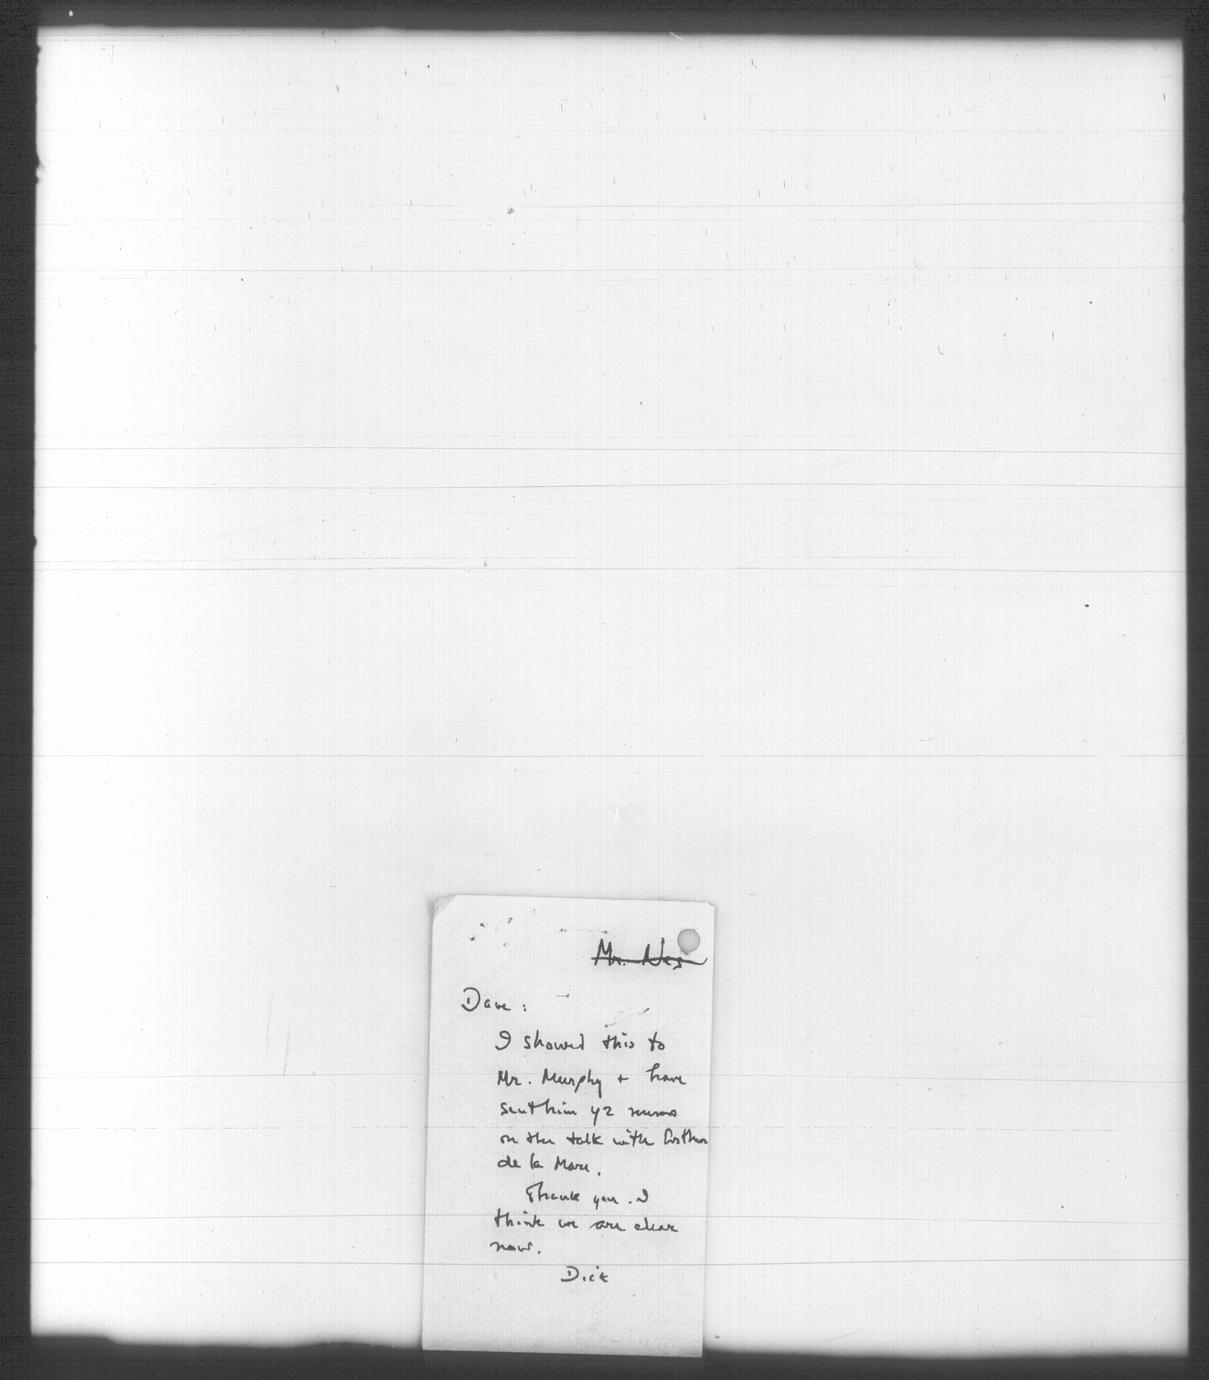 Mr. Nes
Dave:
I showed this to
Mr. Murphy + have
sent him yr memo
on the talk with Arthur
de la Mare.
Thank you. I
think we are clear
now.
Dick